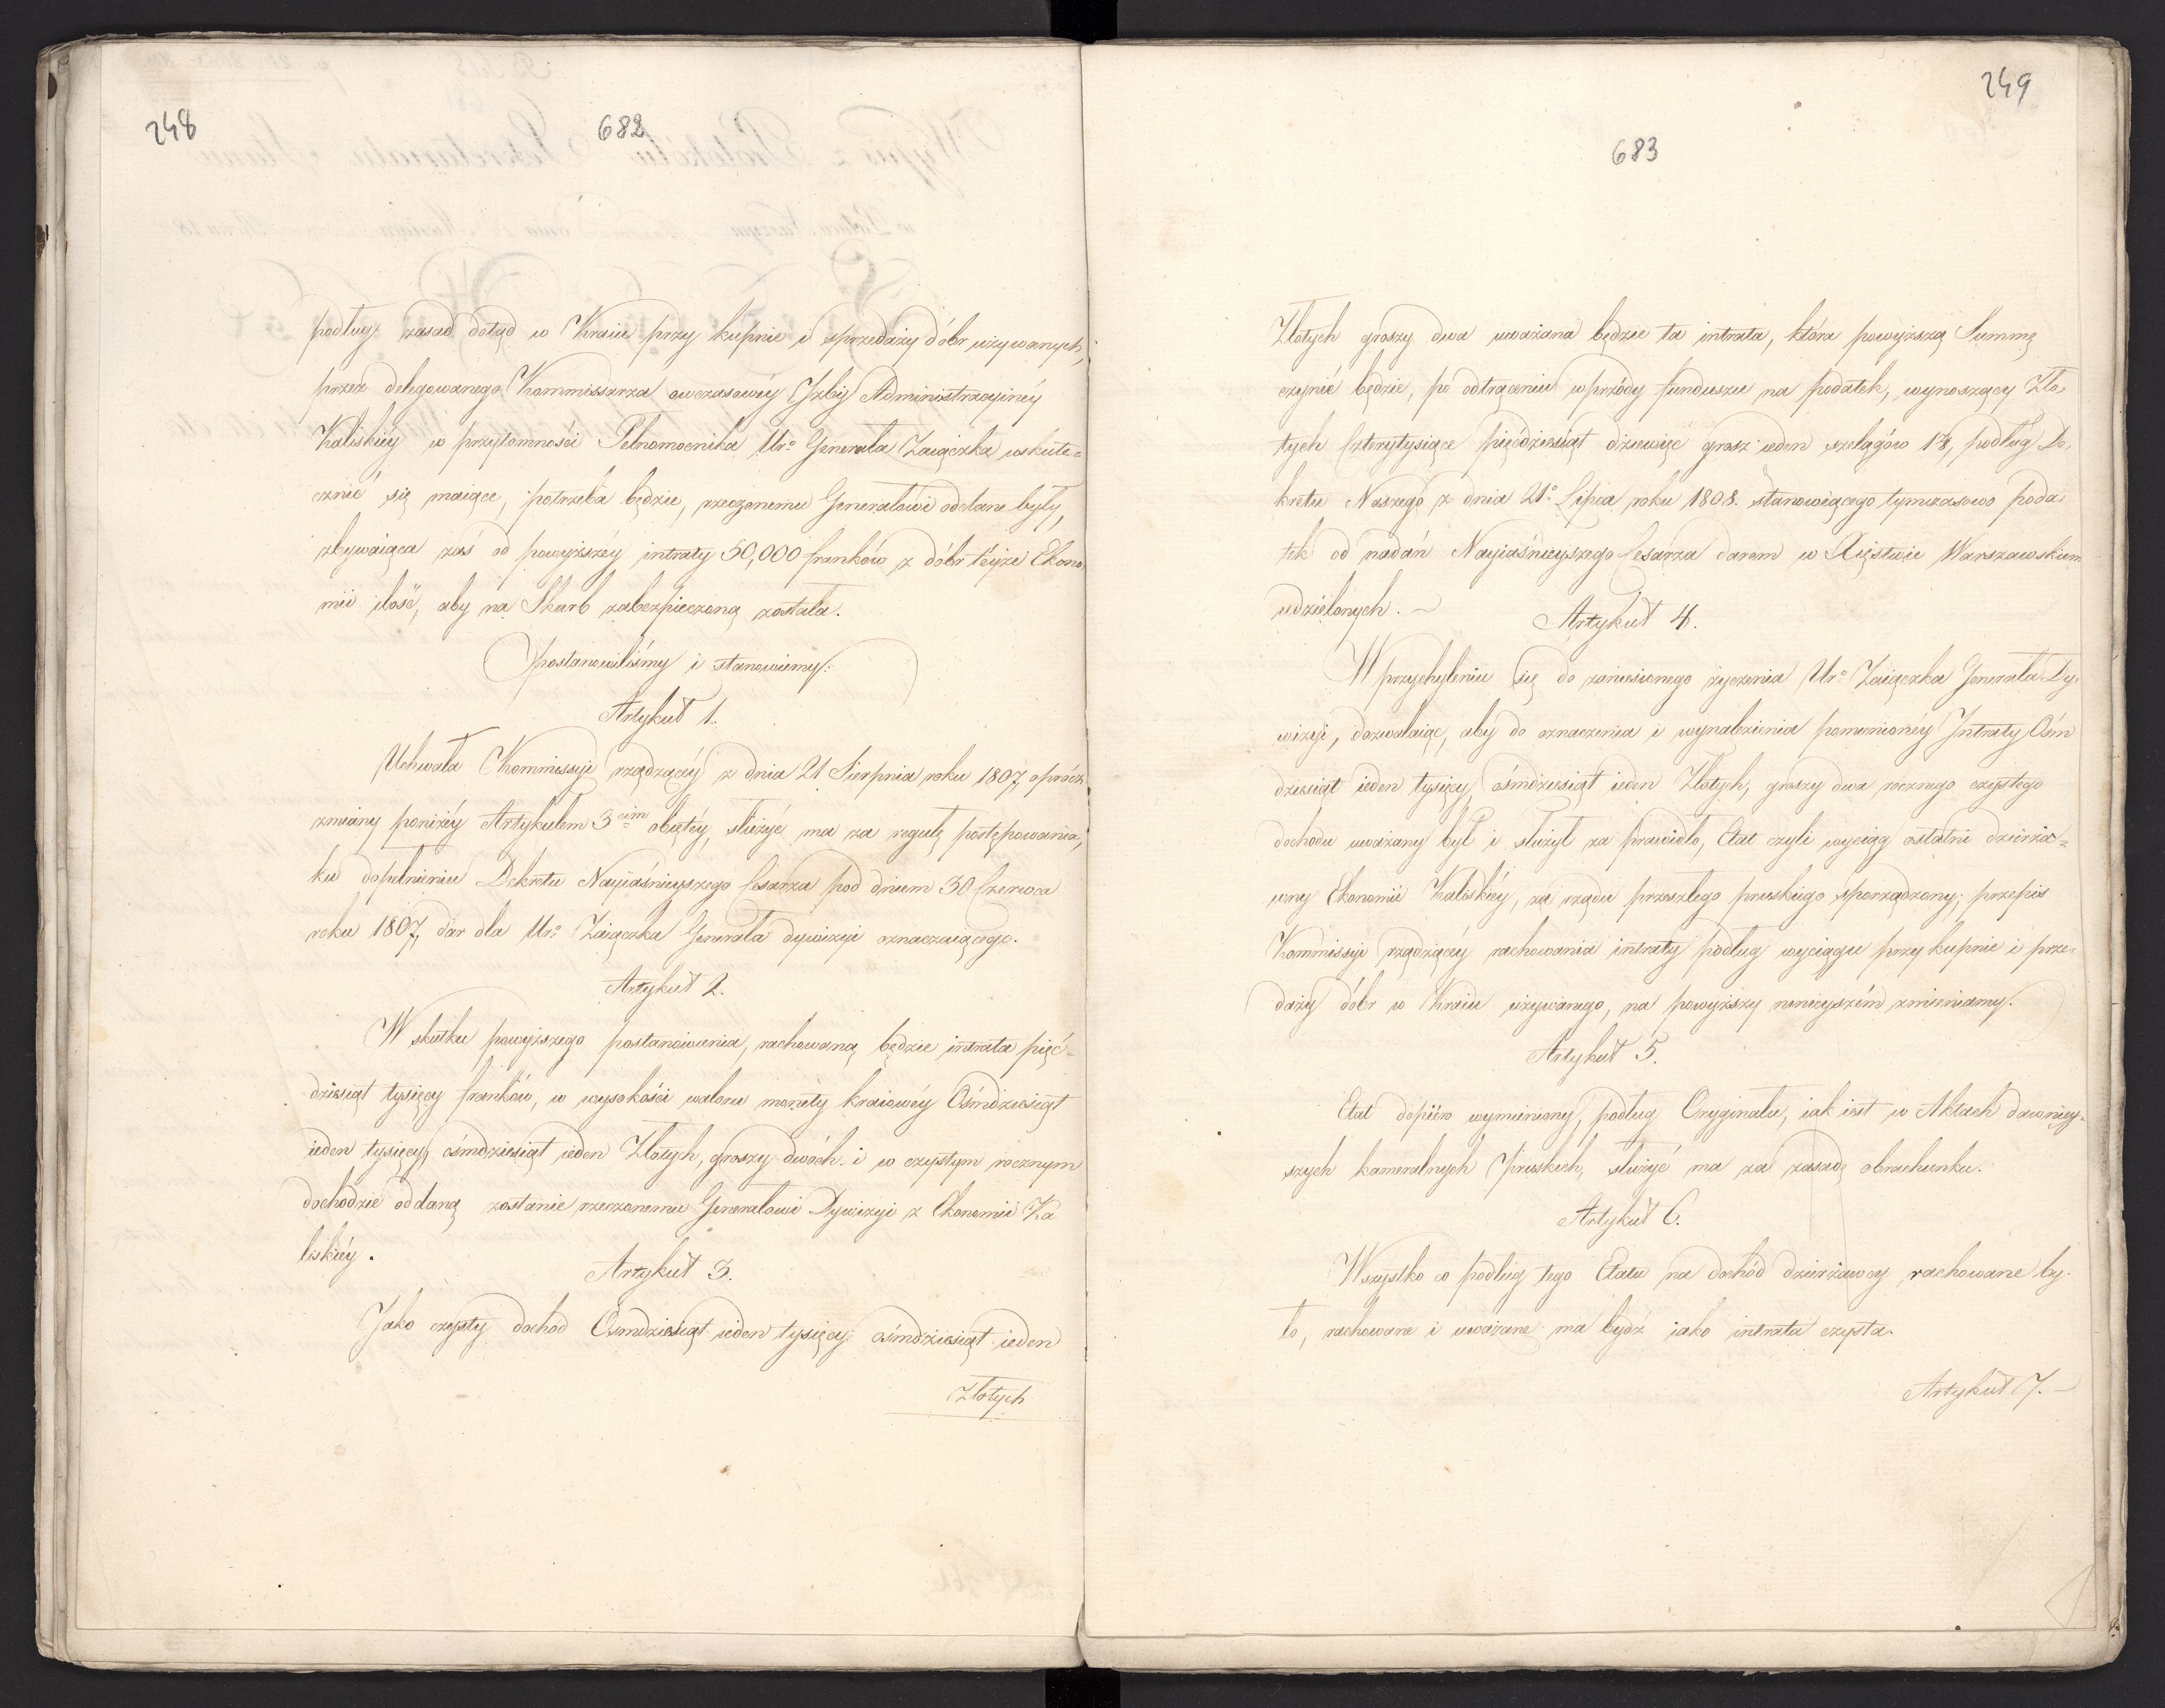 248
682
podług zasad dotąd w Kraiu przy kupnie i sprzedaży dóbr używanych,
przez delegowanego Kommissarza owczasowéy Izby Administracyinéy
Kaliskiéy w przytomności Pełnomocnika Ur.o Generała Zaiączka uskute=
cznić się maiące, potrzeba będzie, rzeczonemu Generałowi oddane były,
zbywaiąca zaś od powyższéy intraty 50,000 franków z dóbr téyże Ekono
mii ilość, aby na Skarb zabezpieczoną została.
postanowiliśmy i stanowiemy:
Artykuł 1.
Uchwała Kommissyi rządzącéy z dnia 21 Sierpnia roku 1807, oprócz
zmiany poniżéy Artykułem 3cim obiętéy, służyć ma za regułę postępowania,
ku dopełnieniu Dekretu Nayiaśnieyszego Cesarza pod dniem 30 Czerwca
roku 1807, dar dla Ur.o Zaiączka Generała dywizyi oznaczaiącego.
Artykuł 2.
W skutku powyższego postanowienia, rachowaną będzie intrata pięć=
dziesiąt tysięcy franków, w wysokości waloru monety kraiowéy Ośmdziesiąt
ieden tysięcy, ośmdziesiąt ieden Złotych, groszy dwóch i w czystym rocznym
dochodzie oddaną zostanie rzeczonemu Generałowi Dywizyi z Ekonomii Ka
liskiéy.
Artykuł 3.
Jako czysty dochód Ośmdziesiąt ieden tysięcy ośmdziesiąt ieden
Złotych
249
683
Złotych groszy dwa uważana będzie ta intrata, która powyższą Summę
czynić będzie, po odtrąceniu wprzódy funduszu na podatek, wynoszący Zło,
tych Czterytysiące pięćdziesiąt dziewięć grosz ieden szelągów 1⅞, podług De,
kretu Naszego z dnia 21.o Lipca roku 1808. stanowiącego tymczasowo poda=
tek od nadań Nayiaśnieyszego Cesarza darem w Xięstwie Warszawskiem
udzielonych. ~
Artykuł 4.
W przychyleniu się do zaniesionego życzenia Ur.o Zaiączka Generała Dy=
wizyi, dozwalaiąc, aby do oznaczenia i wynalezienia pomienionéy Intraty Ośm
dziesiąt ieden tysięcy, ośmdziesiąt ieden Złotych, groszy dwa rocznego czystego
dochodu uważany był i służył za prawidło, Etat czyli wyciąg ostatni dzierża=
wny Ekonomii Kaliskiéy, za rządu przeszłego pruskiego sporządzony; przepis
Kommissyi rządzącéy rachowania intraty podług wyciągu przy kupnie i prze=
daży dóbr w Kraiu używanego, na powyższy ninieyszém zmieniamy.
Artykuł 5.
Etat dopiéro wymieniony, podług Oryginału, iak iest w Aktach dawniéy=
szych kameralnych Pruskich, służyć ma za zasadę obrachunku.
Artykuł 6.
Wszystko co podług tego Etatu na dochód dzierżawcy rachowane by=
ło, rachowane i uważane ma bydź iako intrata czysta.
Artykuł 7. ~